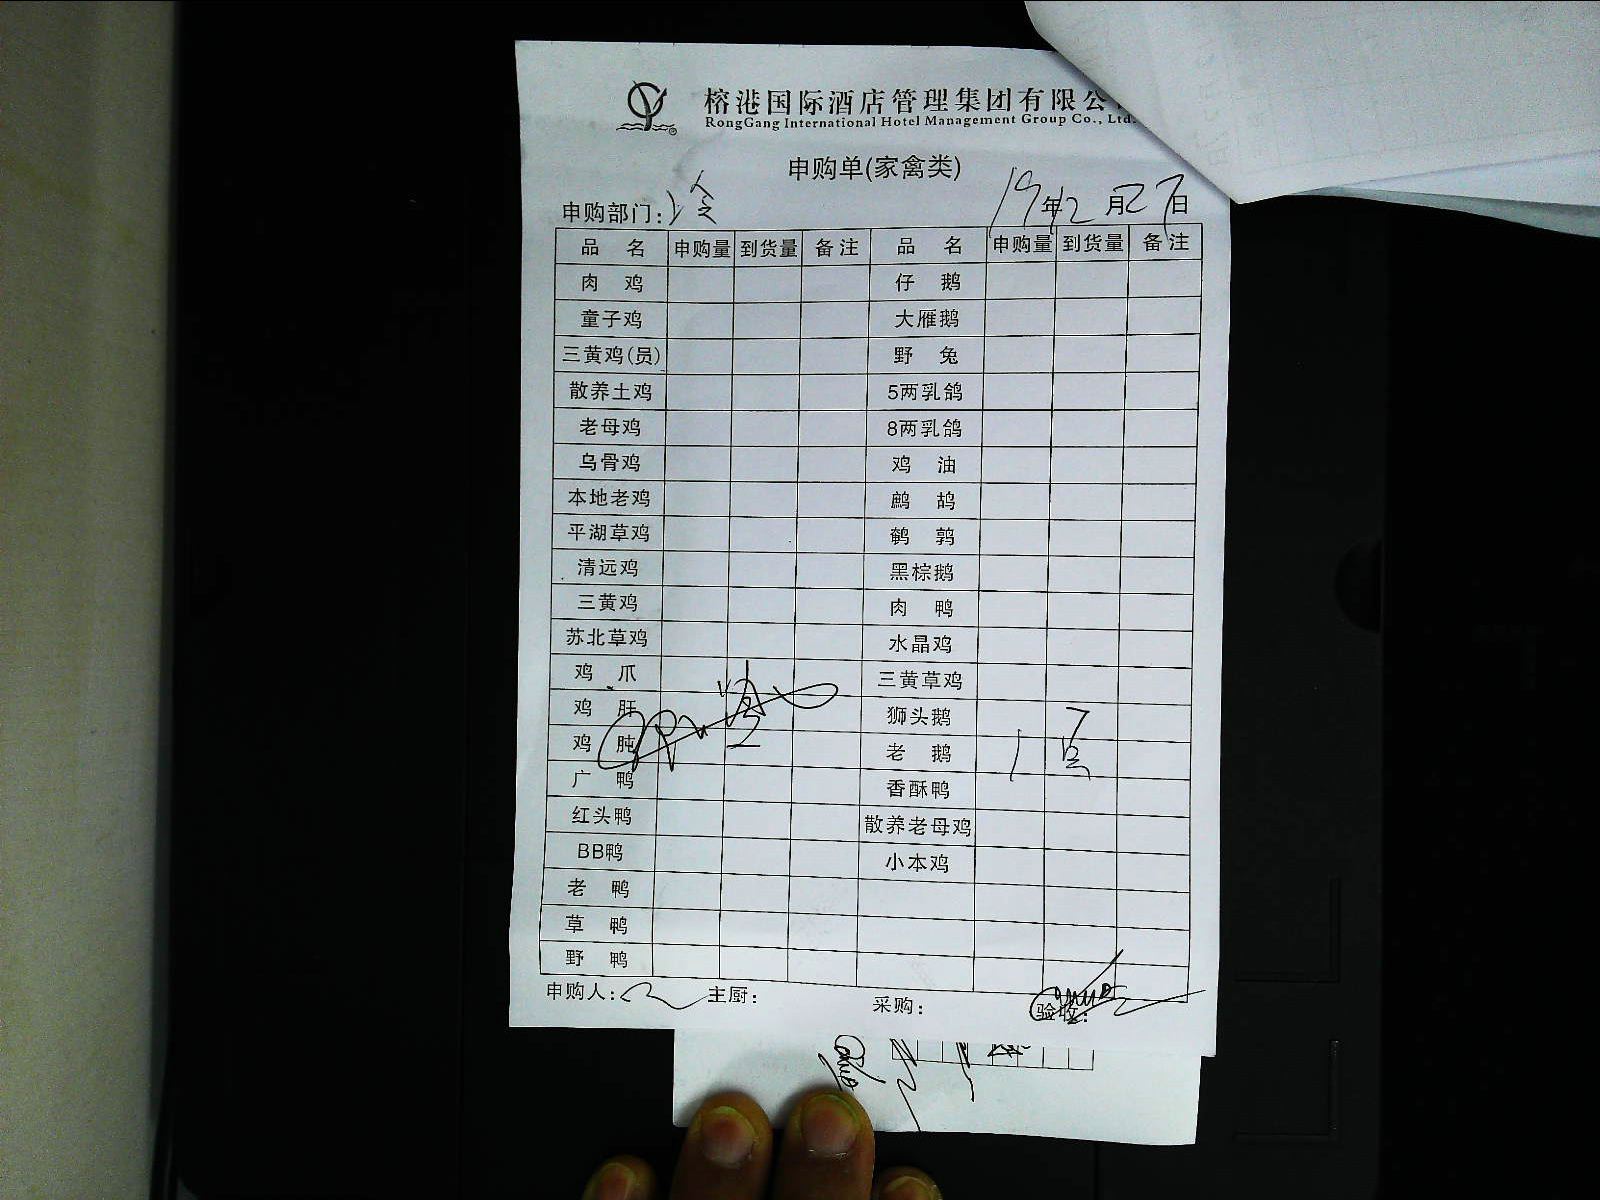 榕港国际酒店管理集团有限公
RongGang International Hotel Management Group Co., Ltd.
申购单(家禽类)
申购部门: 冷 19年12月27日
品 名 申购量 到货量 备注 品 名 申购量 到货量 备注
肉 鸡 仔 鹅
童子鸡 大雁鹅
三黄鸡(员) 野 兔
散养土鸡 5两乳鸽
老母鸡 8两乳鸽
乌骨鸡 鸡 油
本地老鸡 鹧 鸪
平湖草鸡 鹌 鹑
清远鸡 黑棕鹅
三黄鸡 肉 鸭
苏北草鸡 水晶鸡
鸡 爪 三黄草鸡
鸡 肝 狮头鹅
鸡 肫 老 鹅 1
广 鸭 香酥鸭
红头鸭 散养老母鸡
BB鸭 小本鸡
老 鸭
草 鸭
野 鸭
申购人: 主厨: 采购: 验收: